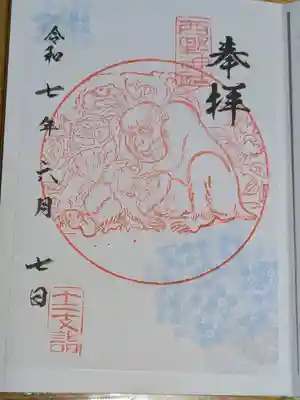 奉拝
令和七年六月七日
十二支詣